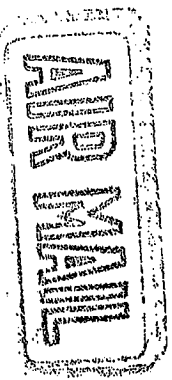 AIR MAIL